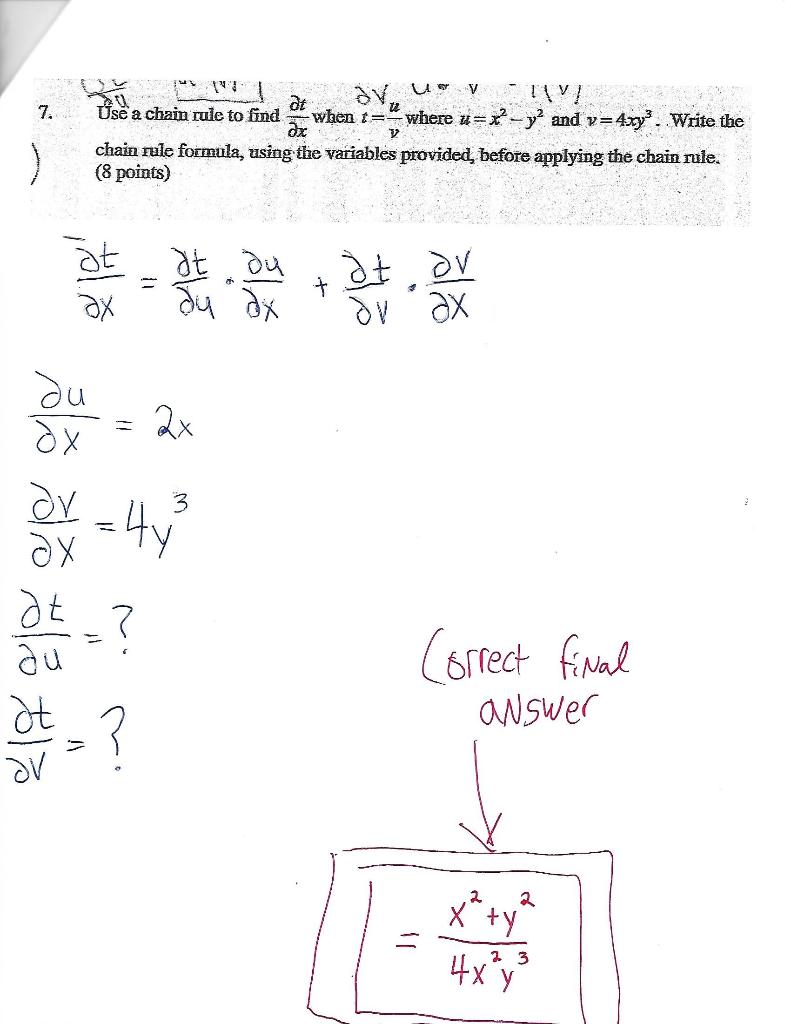 7. Use a chain rule to find ∂t/∂x when t = u/v where u = x² – y² and v = 4xy³. Write the
chain rule formula, using the variables provided, before applying the chain rule.
(8 points)
∂t/∂x = ∂t/∂u · ∂u/∂x + ∂t/∂v · ∂v/∂x
∂u/∂x = 2x
∂v/∂x = 4y³
∂t/∂u = ?
∂t/∂v = ?
Correct final
answer
= x² + y² / 4x²y³